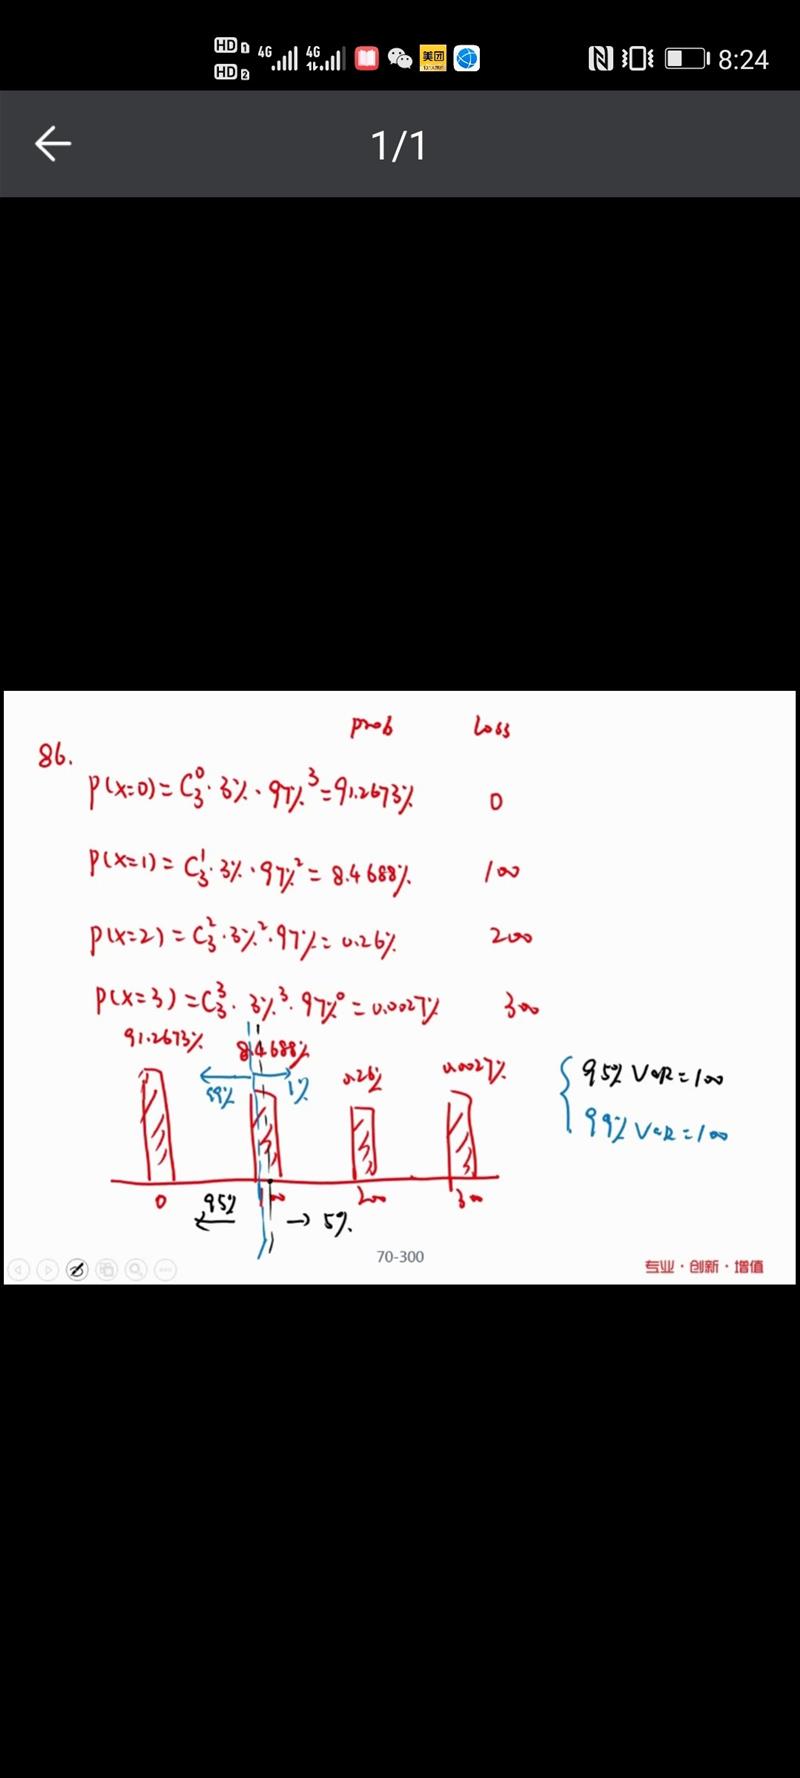 HD 1 4G 4G 美团 8:24
HD 2
1/1
prob loss
86.
P(x=0) = C₃⁰ · 3% · 97%³ = 91.2673% 0
P(x=1) = C₃¹ · 3% · 97%² = 8.4688% 100
P(x=2) = C₃² · 3%² · 97% = 0.26% 200
P(x=3) = C₃³ · 3%³ · 97%⁰ = 0.0027% 300
91.2673% 8.4688% 0.26% 0.0027%
99% 1%
95% VaR = 100
99% VaR = 100
0 100 200 300
95% 5%.
70-300
专业·创新·增值